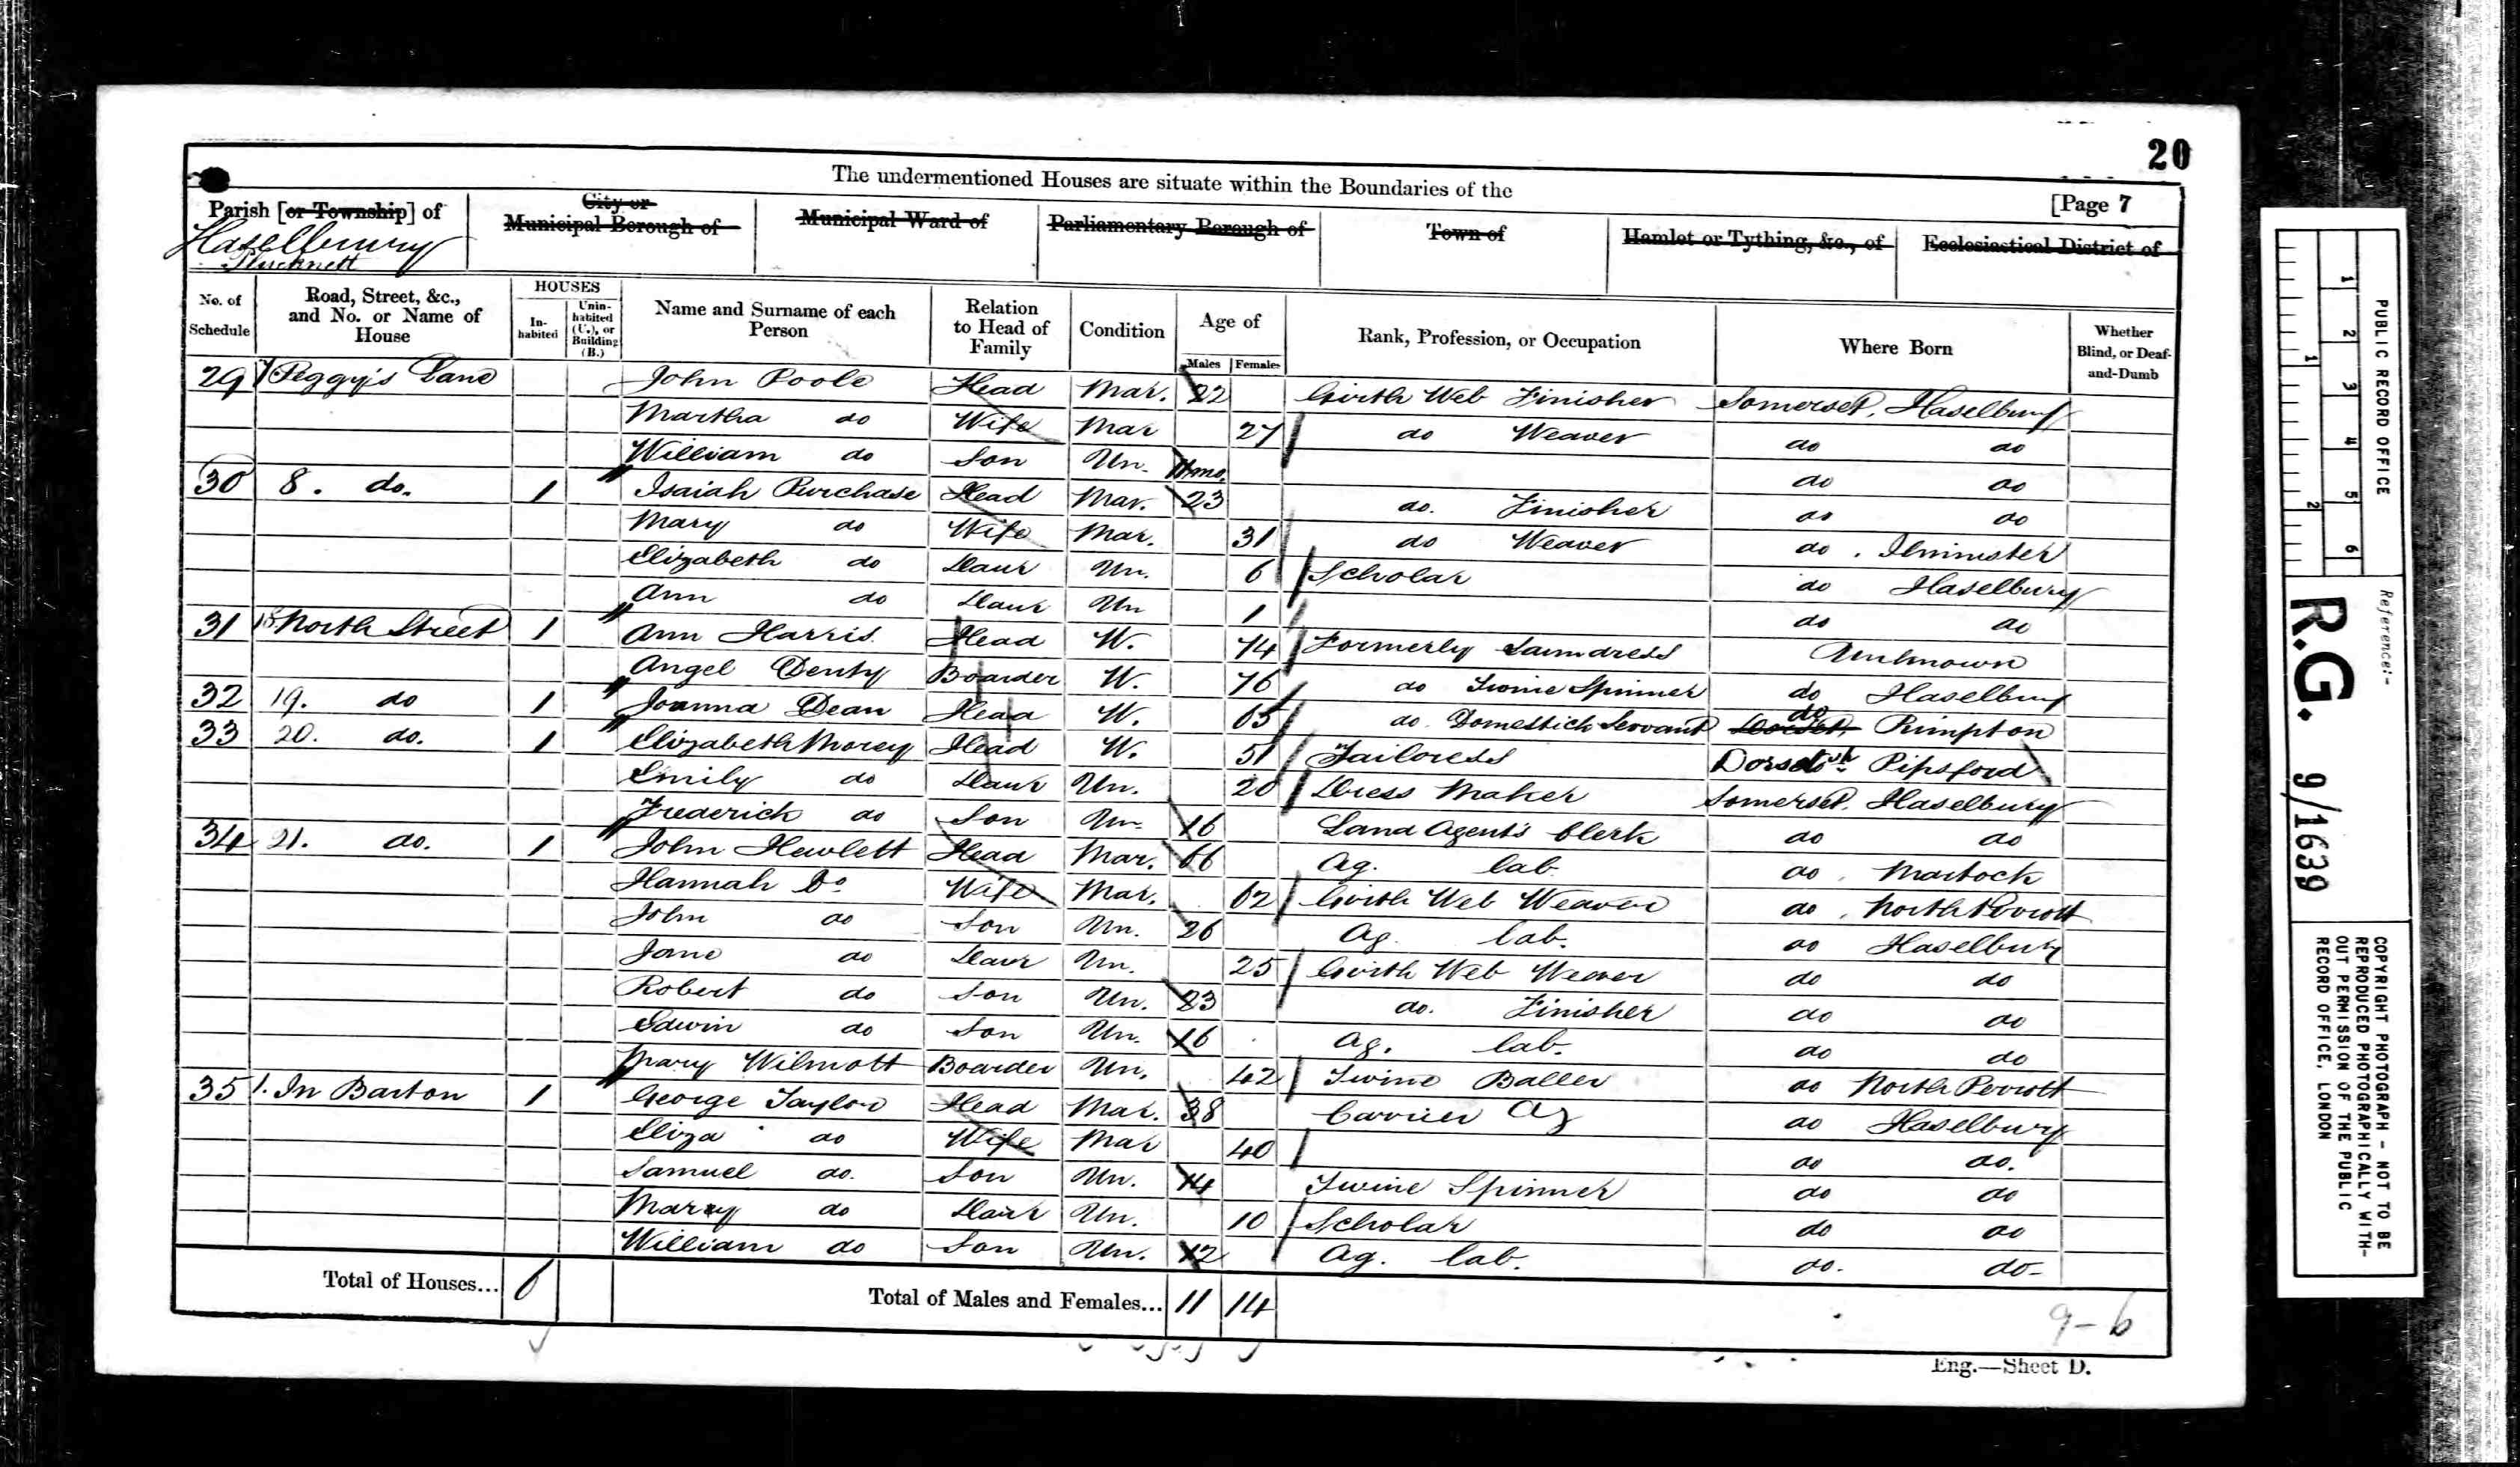 20
The undermentioned Houses are situate within the Boundaries of the
[Page 7
Parish [or Township] of
Haselbury
Plucknett
City or
Municipal Borough of
Municipal Ward of
Parliamentary Borough of
Town of
Hamlet or Tything, &c., of
Ecclesiastical District of
No. of Schedule
Road, Street, &c., and No. or Name of House
HOUSES
In-habited
Unin-habited (U.), or Building (B.)
Name and Surname of each Person
Relation to Head of Family
Condition
Age of
Males
Females
Rank, Profession, or Occupation
Where Born
Whether Blind, or Deaf-and-Dumb
29 7 Peggy's Lane John Poole Head Mar. 22 Girth Web Finisher Somerset, Haselbury
Martha do Wife Mar 27 do Weaver do do
William do Son Un. 11mo. do do
30 8. do. 1 Isaiah Purchase Head Mar. 23 do. Finisher do do
Mary do Wife Mar. 31 do Weaver do. Ilminster
Elizabeth do Daur Un. 6 Scholar do Haselbury
Ann do Daur Un 1 do do
31 18 North Street 1 Ann Harris. Head W. 74 Formerly Laundress Unknown
Angel Denty Boarder W. 76 do Twine Spinner do Haselbury
32 19. do 1 Joanna Dean Head W. 65 do. Domestick Servant do Rimpton
33 20. do. 1 Elizabeth Morey Head W. 51 Tailoress Dorset Pipsford
Emily do Daur Un. 20 Dress Maker Somerset. Haselbury
Frederick do Son Un. 16 Land Agent's Clerk do do
34 21. do. 1 John Hewlett Head Mar. 66 Ag. lab. do. Martock
Hannah Do Wife Mar. 62 Girth Web Weaver do. North Perrott
John do Son Un. 26 Ag. lab. do Haselbury
Jane do Daur Un. 25 Girth Web Weaver do do
Robert do Son Un. 23 do. Finisher do do
Edwin do Son Un. 16 Ag. lab. do do
Mary Wilmott Boarder Un. 42 Twine Baller do North Perrott
35 1. In Barton 1 George Taylor Head Mar. 38 Carrier Ag do Haselbury
Eliza do Wife Mar 40 do do.
Samuel do. Son Un. 14 Twine Spinner do do
Mary do Daur Un. 10 Scholar do do
William do Son Un. 12 Ag. lab. do. do
Total of Houses... 6
Total of Males and Females... 11 14
9-6
Eng.—Sheet D.
PUBLIC RECORD OFFICE
1 2 3 4 5 6
1 2
Reference:-
R.G. 9/1639
COPYRIGHT PHOTOGRAPH - NOT TO BE
REPRODUCED PHOTOGRAPHICALLY WITH-
OUT PERMISSION OF THE PUBLIC
RECORD OFFICE, LONDON